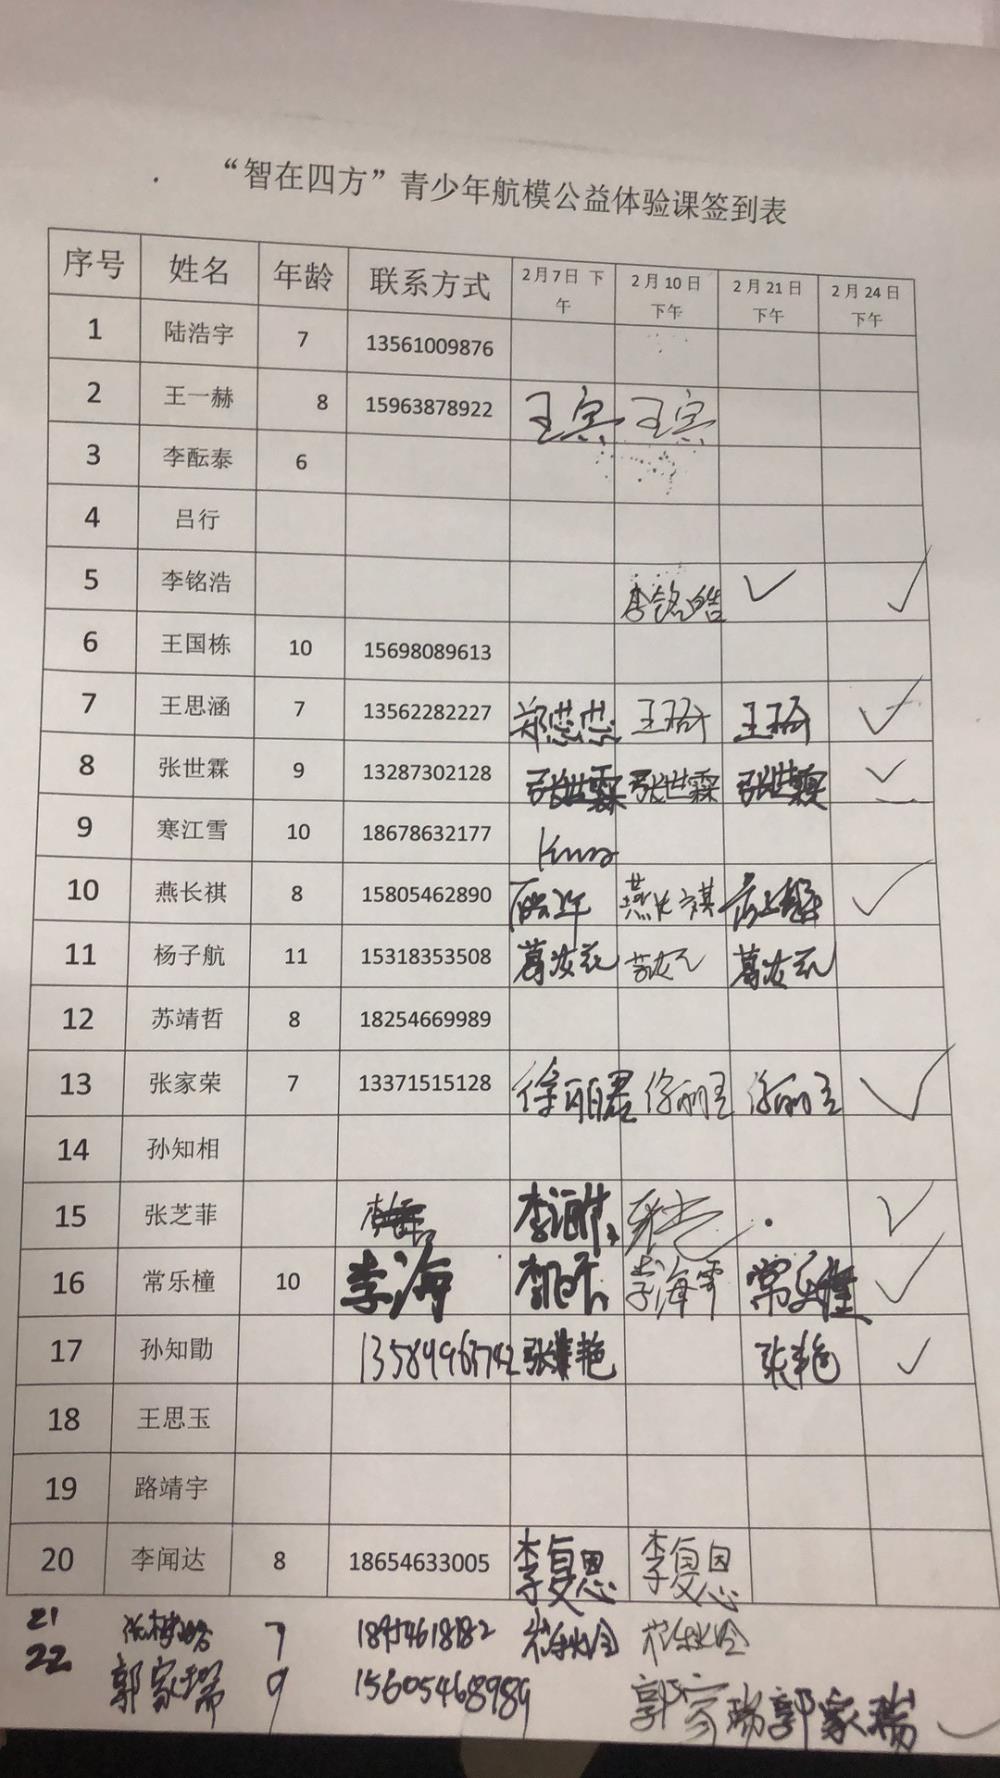 “智在四方”青少年航模公益体验课签到表
序号 姓名 年龄 联系方式 2月7日 下午 2月10日 下午 2月21日 下午 2月24日 下午
1 陆浩宇 7 13561009876
2 王一赫 8 15963878922 王宾 王宾
3 李酝泰 6
4 吕行
5 李铭浩 李铭皓 ✓ ✓
6 王国栋 10 15698089613
7 王思涵 7 13562282227 ✓
8 张世霖 9 13287302128 张世霖 张世霖 张世霖 ✓
9 寒江雪 10 18678632177
10 燕长祺 8 15805462890 燕长祺 ✓
11 杨子航 11 15318353508 葛汝花
12 苏靖哲 8 18254669989
13 张家荣 7 13371515128 徐丽君 ✓
14 孙知相
15 张芝菲 ✓
16 常乐橦 10 李海 李海霞 常乐橦 ✓
17 孙知勖 13584965742 张艳 ✓
18 王思玉
19 路靖宇
20 李闻达 8 18654633005 李复恩 李复恩
21 7 18954618182
22 郭家瑞 9 15605468989 郭家瑞 郭家瑞 ✓